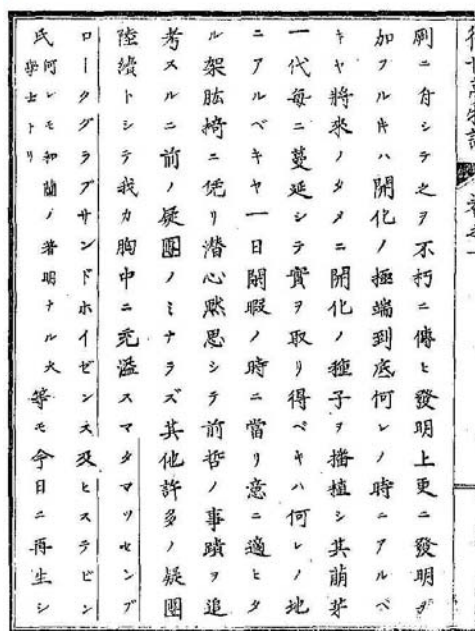 刷ニ付シテ之ヲ不朽ニ傳ヒ發明上更ニ發明ヲ
加フル𪜈ハ開化ノ極端到底何レノ時ニアルベ
キヤ將來ノタメニ開化ノ種子ヲ播植シ其萌芽
一代毎ニ蔓延シテ實ヲ取リ得ベキハ何レノ地
ニアルベキヤ一日閑暇ノ時ニ當リ意ニ適ヒタ
ル架肱椅ニ凭リ潜心黙思シテ前哲ノ事蹟ヲ追
考スルニ前ノ疑團ノミナラズ其他許多ノ疑團
陸續トシテ我カ胸中ニ充溢スマタマツセンブ
ロークグラブサンドホイゼンス及ヒステビン
氏何レモ和蘭ノ著明ナル大學士ナリ等モ今日ニ再生シ